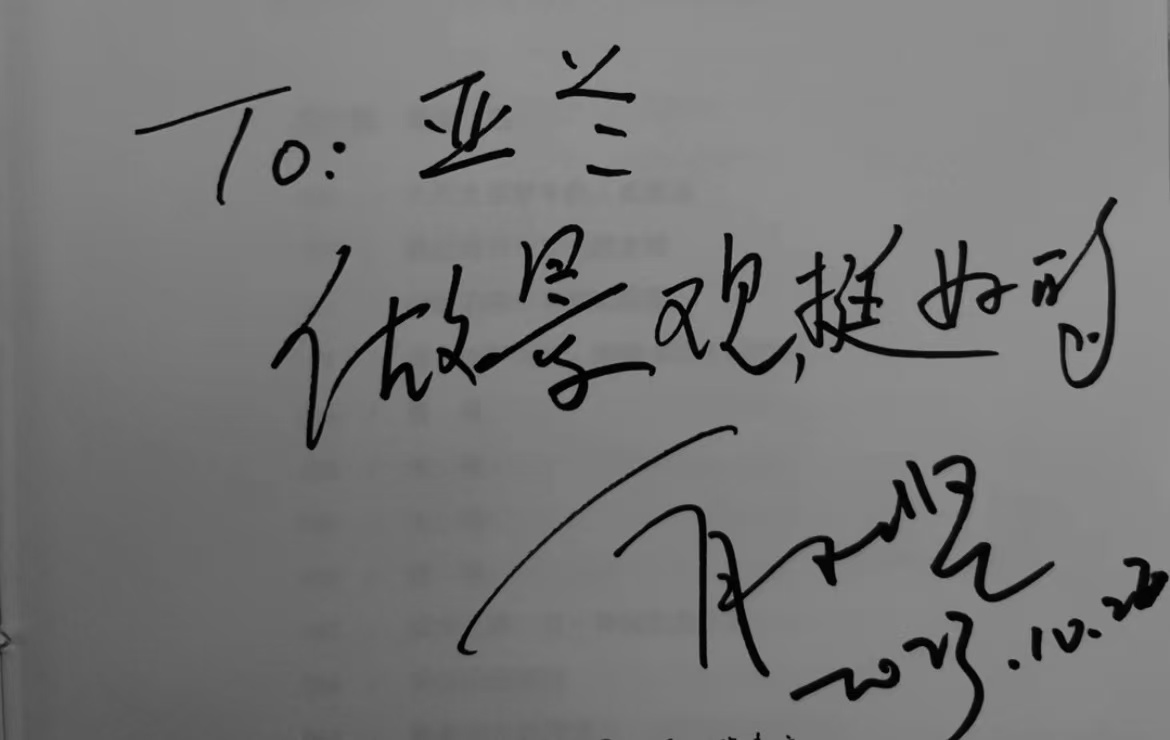 To: 亚兰
做景观,挺好的
2023.10.20